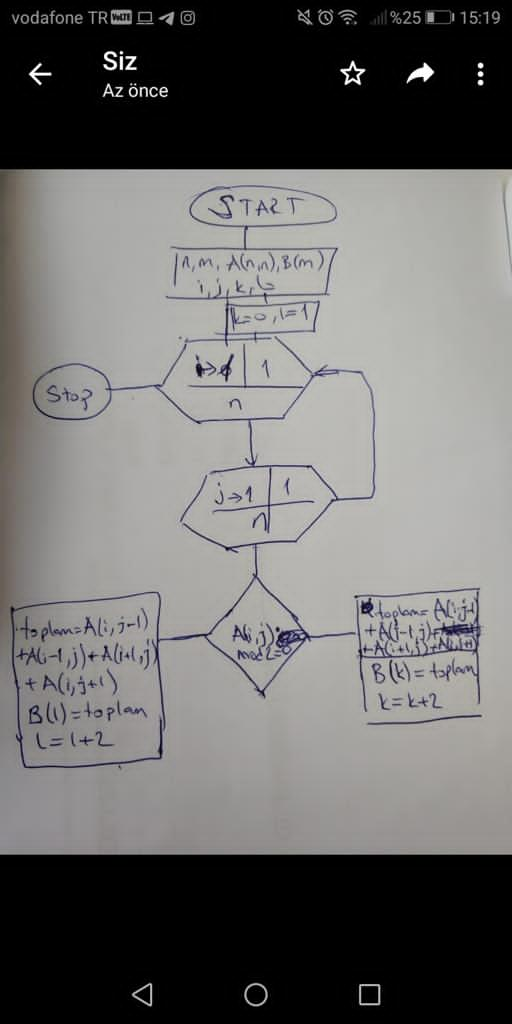 vodafone TR VoLTE %25 15:19
Siz
Az önce
START
n, m, A(n,n), B(m)
i, j, k, l
k=0, l=1
1
n
Stop
j→1 1
n
A(i,j)
mod2=0
toplam=A(i,j-1)
+A(i-1,j)+A(i+1,j)
+A(i,j+1)
B(l)=toplam
l=l+2
toplam=A(i,j-1)
+A(j-1,j)+
+A(i+1,j)+A(i,j+1)
B(k)=toplam
k=k+2